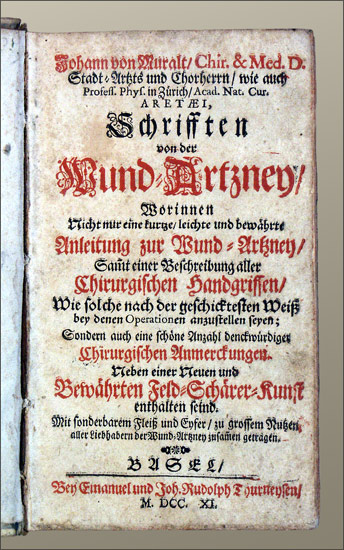 Johann von Muralt/ Chir. & Med. D.
Stadt-Artzts und Chorherrn/ wie auch
Profess. Phys. in Zürich/ Acad. Nat. Cur.
ARETÆI,
Schrifften
von der
Wund-Artzney/
Worinnen
Nicht nur eine kurtze/ leichte und bewährte
Anleitung zur Wund-Artzney/
Sam̃t einer Beschreibung aller
Chirurgischen Handgriffen/
Wie solche nach der geschicktesten Weiß
bey denen Operationen anzustellen seyen;
Sondern auch eine schöne Anzahl denckwürdiger
Chirurgischen Anmerckungen.
Neben einer Neuen und
Bewährten Feld-Schärer-Kunst
enthalten seind.
Mit sonderbarem Fleiß und Eyfer/ zu grossem Nutzen
aller Liebhabern der Wund-Artzney zusam̃en getragen.
BASEL/
Bey Emanuel und Joh. Rudolph Thurneysen/
M. DCC. XI.